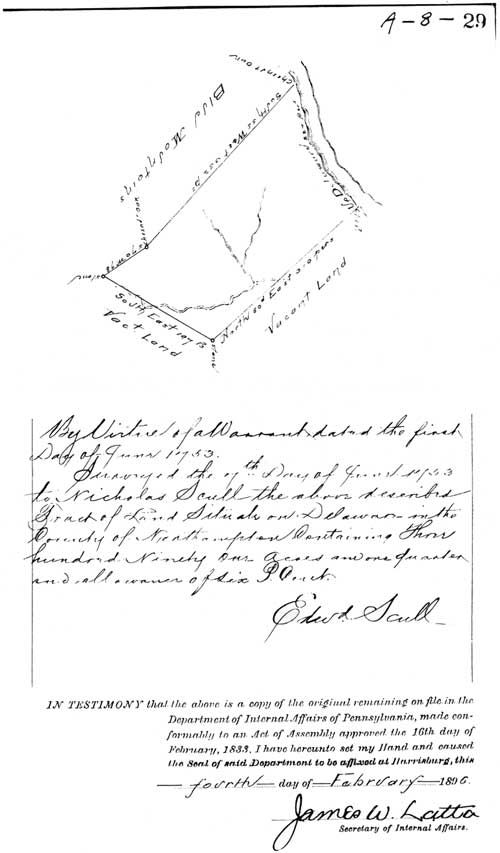 A-8-29
Chesnut oak
Blue Mountains
South 50 West 332 ps
Stone
South East 107 ps
Vact Land
Stone
North 50 East 310 pers
Vacant Land
By Virtue of a Warrant dated the first
Day of June 1753.
Surveyed the 7th Day of June 1753
to Nicholas Scull the above described
Tract of Land Situate on Delaware in the
County of Northampton Containing Three
hundred Ninety One Acres and one quarter
and allowance of six P Cent.
Edwd. Scull
IN TESTIMONY that the above is a copy of the original remaining on file in the
Department of Internal Affairs of Pennsylvania, made con-
formably to an Act of Assembly approved the 16th day of
February, 1833, I have hereunto set my Hand and caused
the Seal of said Department to be affixed at Harrisburg, this
fourth day of February 1896.
James W. Latta
Secretary of Internal Affairs.